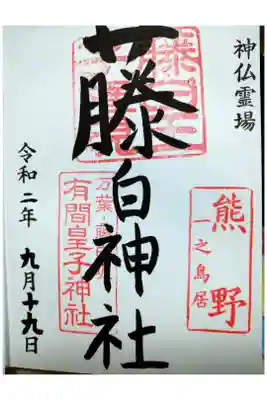 神仏霊場
熊野
一之鳥居
藤白神社
有間皇子神社
令和二年 九月十九日